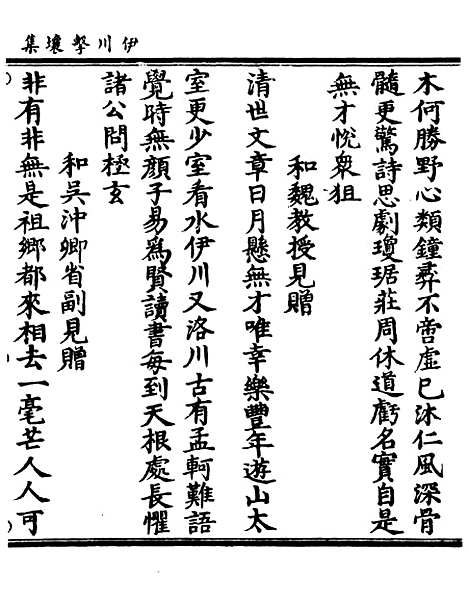 伊川擊壤集
木何勝野心類鐘彛不啻虛已沐仁風深骨
髓更驚詩思劇瓊琚莊周休道虧名實自是
無才恱衆狙
和魏教授見贈
清世文章日月懸無才唯幸樂豐年遊山太
室更少室看水伊川又洛川古有孟軻難語
覺時無顏子易爲賢讀書每到天根處長懼
諸公問極玄
和吳沖卿省副見贈
非有非無是祖鄉都來相去一毫芒人人可